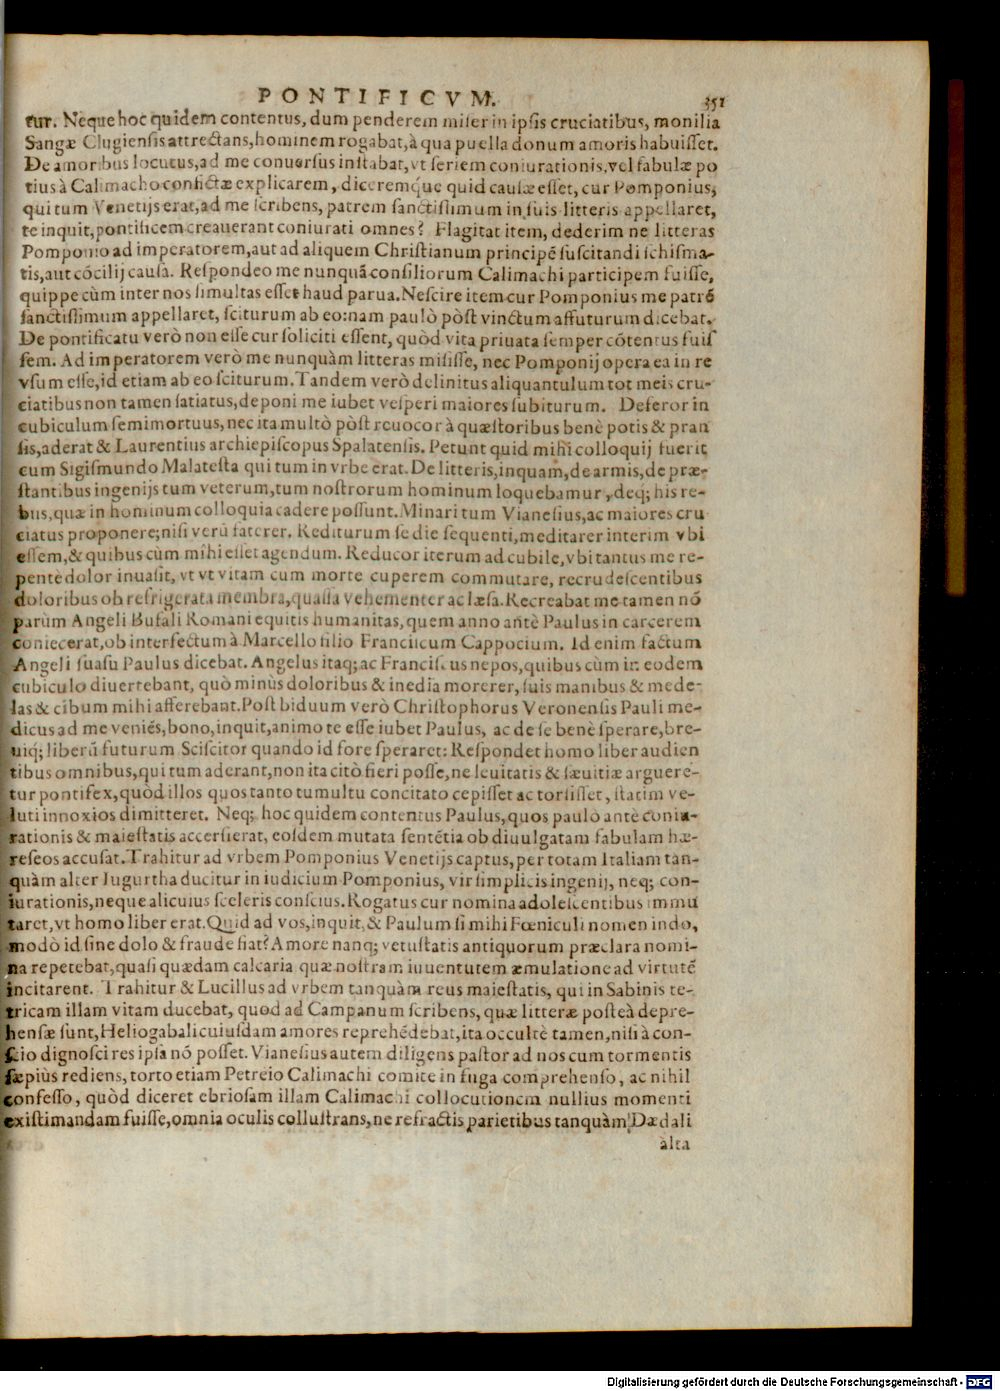 PONTIFICVM. 351
tur. Neque hoc quidem contentus, dum penderem miser in ipsis cruciatibus, monilia
Sangæ Clugiensis attrectans, hominem rogabat, à qua puella donum amoris habuisset.
De amoribus locutus, ad me conuersus instabat, vt seriem coniurationis, vel fabulæ po
tius à Calimacho confictæ explicarem, diceremq́ue quid causæ esset, cur Pomponius,
qui tum Venetijs erat, ad me scribens, patrem sanctissimum in suis litteris appellaret,
te inquit, pontificem creauerant coniurati omnes? Flagitat item, dederim ne litteras
Pomponio ad imperatorem, aut ad aliquem Christianum principē suscitandi schisma-
tis, aut cōcilij causa. Respondeo me nunquā consiliorum Calimachi participem fuisse,
quippe cùm inter nos simultas esset haud parua. Nescire item cur Pomponius me patrē
sanctissimum appellaret, sciturum ab eo: nam paulò pòst vinctum affuturum dicebat.
De pontificatu verò non esse cur soliciti essent, quòd vita priuata semper cōtentus fuis
sem. Ad imperatorem verò me nunquàm litteras misisse, nec Pomponij opera ea in re
vsum esse, id etiam ab eo sciturum. Tandem verò delinitus aliquantulum tot meis cru-
ciatibus non tamen satiatus, deponi me iubet vesperi maiores subiturum. Deferor in
cubiculum semimortuus, nec ita multò pòst reuocor à quæstoribus benè potis & pran
sis, aderat & Laurentius archiepiscopus Spalatensis. Petunt quid mihi colloquij fuerit
cum Sigismundo Malatesta qui tum in vrbe erat. De litteris, inquam, de armis, de præ-
stantibus ingenijs tum veterum, tum nostrorum hominum loquebamur, deq; his re-
bus, quæ in hominum colloquia cadere possunt. Minari tum Vianesius, ac maiores cru
ciatus proponere; nisi verū faterer. Rediturum se die sequenti, meditarer interim vbi
essem, & quibus cùm mihi esset agendum. Reducor iterum ad cubile, vbi tantus me re-
pentè dolor inuasit, vt vt vitam cum morte cuperem commutare, recrudescentibus
doloribus ob refrigerata membra, quassa vehementer ac læsa. Recreabat me tamen nō
parùm Angeli Bufali Romani equitis humanitas, quem anno antè Paulus in carcerem
coniecerat, ob interfectum à Marcello filio Franciscum Cappocium. Id enim factum
Angeli suasu Paulus dicebat. Angelus itaq; ac Franciscus nepos, quibus cùm in eodem
cubiculo diuertebant, quò minùs doloribus & inedia morerer, suis manibus & mede-
las & cibum mihi afferebant. Post biduum verò Christophorus Veronensis Pauli me-
dicus ad me veniēs, bono, inquit, animo te esse iubet Paulus, ac de se benè sperare, bre-
uiq; liberū futurum Sciscitor quando id fore speraret: Respondet homo liber audien
tibus omnibus, qui tum aderant, non ita citò fieri posse, ne leuitatis & sæuitiæ arguere-
tur pontifex, quòd illos quos tanto tumultu concitato cepisset ac torsisset, statim ve-
luti innoxios dimitteret. Neq; hoc quidem contentus Paulus, quos paulò antè coniu-
rationis & maiestatis accersierat, eosdem mutata sentētia ob diuulgatam fabulam hæ-
reseos accusat. Trahitur ad vrbem Pomponius Venetijs captus, per totam Italiam tan-
quàm alter Iugurtha ducitur in iudicium Pomponius, vir simplicis ingenij, neq; con-
iurationis, neque alicuius sceleris conscius. Rogatus cur nomina adolescentibus immu
taret, vt homo liber erat. Quid ad vos, inquit, & Paulum si mihi Fœniculi nomen indo,
modò id sine dolo & fraude fiat? Amore nanq; vetustatis antiquorum præclara nomi-
na repetebat, quasi quædam calcaria quæ nostram iuuentutem æmulatione ad virtutē
incitarent. Trahitur & Lucillus ad vrbem tanquàm reus maiestatis, qui in Sabinis te-
tricam illam vitam ducebat, quod ad Campanum scribens, quæ litteræ posteà depre-
hensæ sunt, Heliogabali cuiusdam amores reprehēdebat, ita occultè tamen, nisi à con-
scio dignosci res ipsa nō posset. Vianesius autem diligens pastor ad nos cum tormentis
sæpiùs rediens, torto etiam Petreio Calimachi comite in fuga comprehenso, ac nihil
confesso, quòd diceret ebriosam illam Calimachi collocutionem nullius momenti
existimandam fuisse, omnia oculis collustrans, ne refractis parietibus tanquàm Dædali
alta
Digitalisierung gefördert durch die Deutsche Forschungsgemeinschaft - DFG